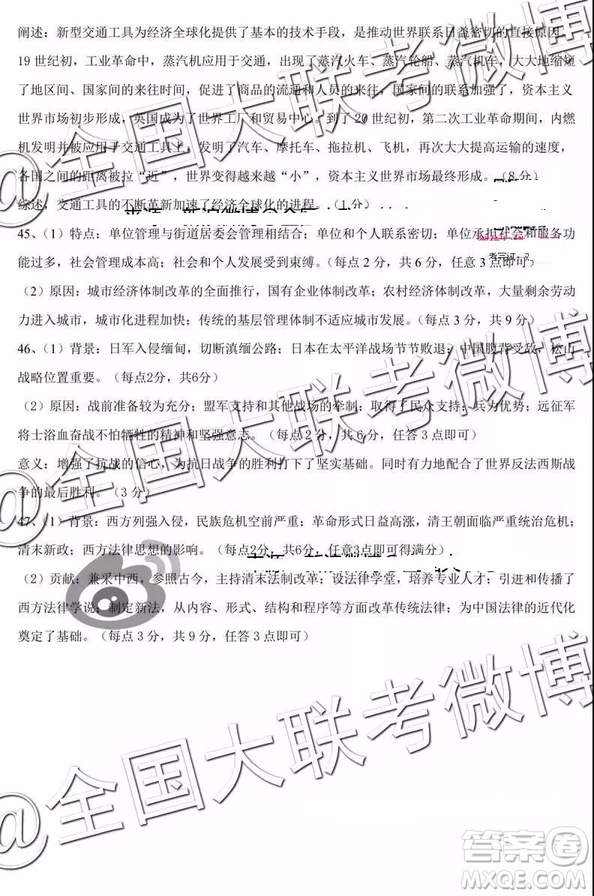 阐述：新型交通工具为经济全球化提供了基本的技术手段，是推动世界联系日益密切的直接原因。
19 世纪初，工业革命中，蒸汽机应用于交通，出现了蒸汽火车、蒸汽轮船、蒸汽机车，大大地缩短
了地区间、国家间的来往时间，促进了商品的流通和人员的来往，国家间的联系加强了，资本主义
世界市场初步形成，英国成为了世界工厂和贸易中心。到了 20 世纪初，第二次工业革命期间，内燃
机发明并被应用于交通工具上，发明了汽车、摩托车、拖拉机、飞机，再次大大提高运输的速度，
各国之间的距离被拉“近”，世界变得越来越“小”，资本主义世界市场最终形成。（8 分）
综述，交通工具的不断革新加速了经济全球化的进程。（1 分）
45、（1）特点：单位管理与街道居委会管理相结合；单位和个人联系密切；单位承担社会和服务功
能过多，社会管理成本高；社会和个人发展受到束缚。（每点 2 分，共 6 分，任意 3 点即可）
（2）原因：城市经济体制改革的全面推行，国有企业改革；农村经济体制改革，大量剩余劳动
力进入城市，城市化进程加快；传统的基层管理体制不适应发展。（每点 3 分，共 9 分）
46、（1）背景：日军入侵缅甸，切断滇缅公路；日本在太平洋战场节节败退；中国腹背受敌，松山
战略位置重要。（每点2分，共6分）
（2）原因：战前准备较为充分；盟军支持和其他战场的牵制；取得了民众支持；兵力优势；远征军
将士浴血奋战不怕牺牲的精神和坚强意志。（每点 2 分，共 6 分，任答 3 点即可）
意义：增强了抗战的信心，为抗日战争的胜利打下了坚实基础。同时有力地配合了世界反法西斯战
争的最后胜利。（3 分）
47、（1）背景：西方列强入侵，民族危机空前严重；革命形式日益高涨，清王朝面临严重统治危机；
清末新政；西方法律思想的影响。（每点2分，共6分，任意3点即可得满分）
（2）贡献：兼采中西，参照古今，主持清末法制改革；设法律学堂，培养专业人才；引进和传播了
西方法律学说；制定新法，从内容、形式、结构和程序等方面改革传统法律；为中国法律的近代化
奠定了基础。（每点 3 分，共 9 分，任答 3 点即可）
@全国大联考微博
@全国大联考微博
@全国大联考微博
答案圈
MXQE.COM